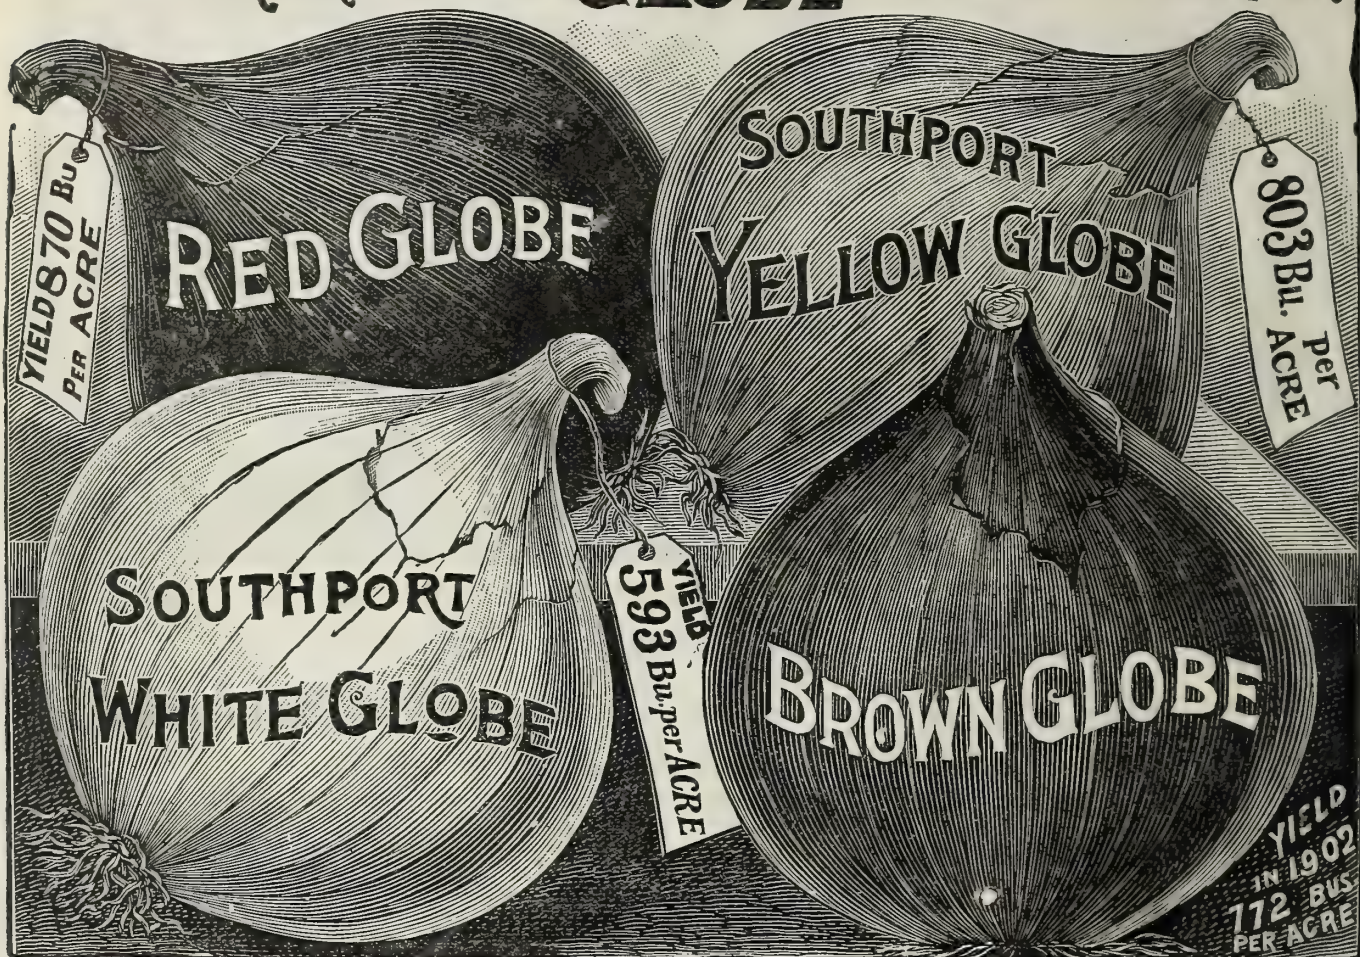 YIELD 870 Bu
PER ACRE
RED GLOBE
SOUTHPORT
YELLOW GLOBE
803 Bu. per
ACRE
SOUTHPORT
WHITE GLOBE
YIELD
593 Bu. per ACRE
BROWN GLOBE
YIELD
IN 1902
772 BUS.
PER ACRE